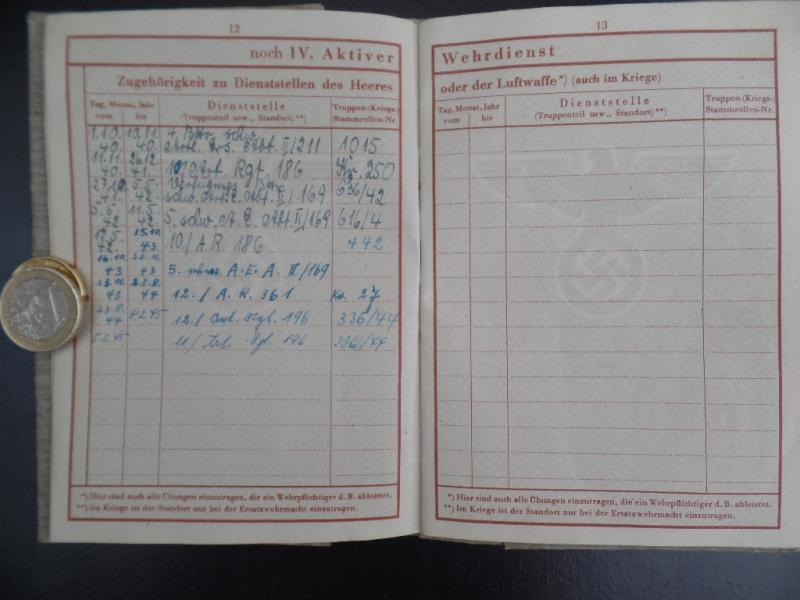 12
noch IV. Aktiver
Zugehörigkeit zu Dienststellen des Heeres
Tag, Monat, Jahr
vom bis
Dienststelle
(Truppenteil usw., Standort) **)
Truppen-(Kriegs-)
Stammrollen-Nr.
1.10. 10.11. 4. Battr. schw.
40. 40. Artl. Ers. Abt. II/211 1015
11.11. 26.12.
40 41. 10/Art. Rgt. 186 Kr. 250
27.12. 5.5. Verfügungs Batr.
41. 42. schw. Art. E. Abt. II/169 636/42
5.5. 11.5.
42 42. 5. schw. A. E. Abt. II/169 616/4
15.10.
42. 43 10./A.R. 186 442
16.10. 22.11.
43 43 5. schw. A.E.A. II/169
23.11. 22.8.
43 44 12./A.R. 361 27
23.8.
44 4.2.45 12./Art. Rgt. 196 336/44
5.2.45 11/Art. Rgt. 196 336/44
*) Hier sind auch alle Übungen einzutragen, die ein Wehrpflichtiger d. B. ableistet.
**) Im Kriege ist der Standort nur bei der Ersatzwehrmacht einzutragen.
13
Wehrdienst
oder der Luftwaffe*) (auch im Kriege)
Tag, Monat, Jahr
vom bis
Dienststelle
(Truppenteil usw., Standort) **)
Truppen-(Kriegs-)
Stammrollen-Nr.
*) Hier sind auch alle Übungen einzutragen, die ein Wehrpflichtiger d. B. ableistet.
**) Im Kriege ist der Standort nur bei der Ersatzwehrmacht einzutragen.